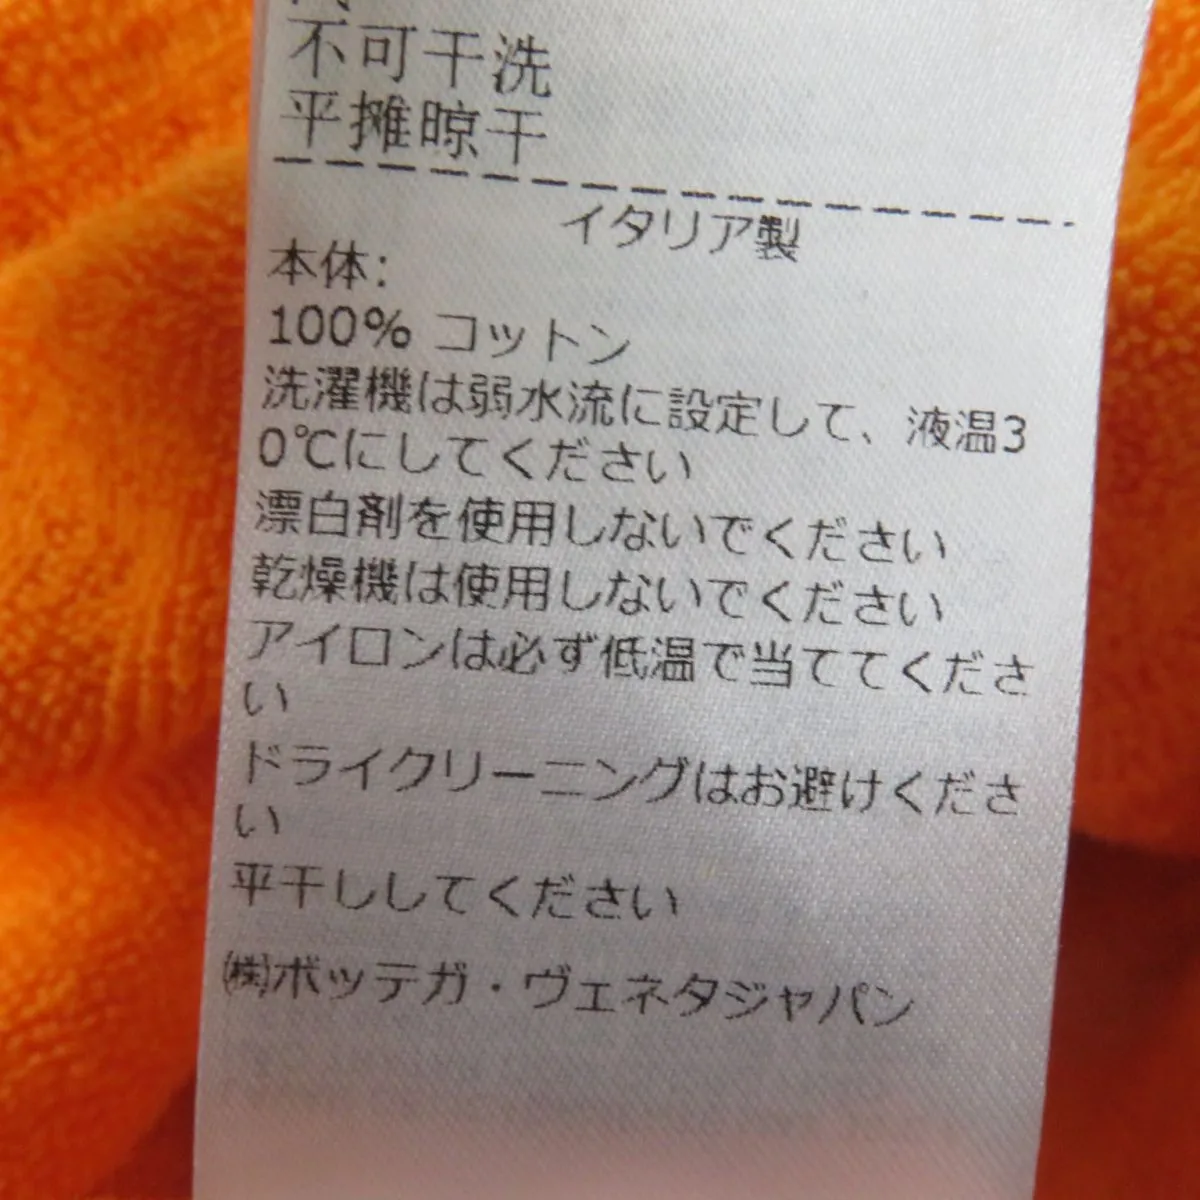 不可干洗
平摊晾干
イタリア製
本体:
100% コットン
洗濯機は弱水流に設定して、液温3
0℃にしてください
漂白剤を使用しないでください
乾燥機は使用しないでください
アイロンは必ず低温で当ててくださ
い
ドライクリーニングはお避けくださ
い
平干ししてください
㈱ボッテガ・ヴェネタジャパン